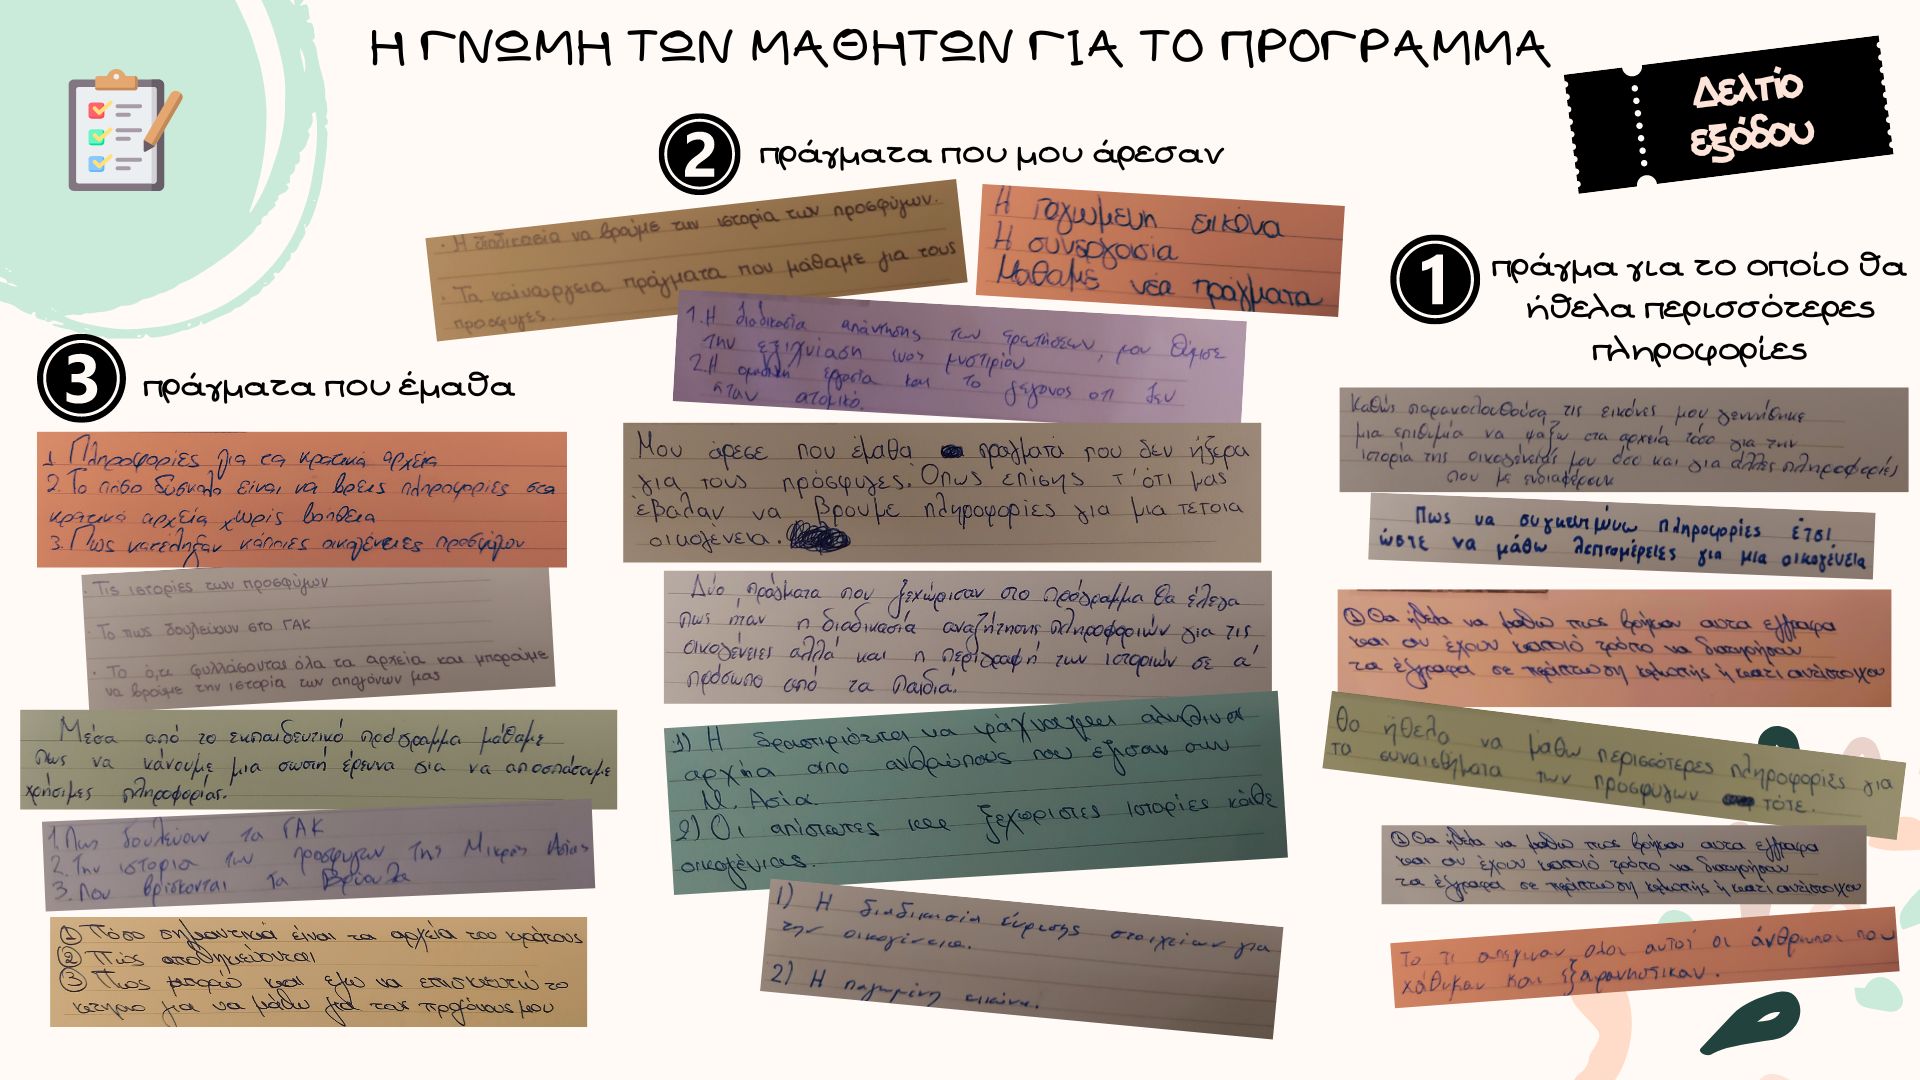 Η ΓΝΩΜΗ ΤΩΝ ΜΑΘΗΤΩΝ ΓΙΑ ΤΟ ΠΡΟΓΡΑΜΜΑ
Δελτίο
εξόδου
3 πράγματα που έμαθα
1 Πληροφορίες για τα κρατικά αρχεία
2. Το πόσο δύσκολο είναι να βρεις πληροφορίες στα
κρατικά αρχεία χωρίς βοήθεια
3. Πως κατέληξαν κάποιες οικογένειες προσφύγων
· Τις ιστορίες των προσφύγων
· Το πως δουλεύουν στο ΓΑΚ
· Το ό,τι φυλλάσονται όλα τα αρχεία και μπορούμε
να βρούμε την ιστορία των απογόνων μας
Μέσα από το εκπαιδευτικό πρόγραμμα μάθαμε
πως να κάνουμε μια σωστή έρευνα για να αποσπάσουμε
χρήσιμες πληροφορίας.
1. Πως δουλεύουν τα ΓΑΚ
2. Την ιστορια των προσφυγων της Μικρας Ασίας
3. Που βρίσκονται τα Βρύουλα
① Πόσο σημαντικά είναι τα αρχεία του κράτους
② Πώς αποθηκεύονται
③ Πως μπορώ και εγω να επισκευτώ το
κτηριο για να μάθω για τους προγόνους μου
2 πράγματα που μου άρεσαν
· Η διαδικασία να βρούμε των ιστορία των προσφύγων.
· Τα καινούργεια πράγματα που μάθαμε για τους
προσφυγες.
Η παγωμενη εικόνα
Η συνεργασία
Μαθαμε νέα πράγματα
1. Η διαδικασία απάντησης των ερωτήσεων, μου θύμισε
την εξιχνίαση ενος μυστιρίου
2. Η ομαδική εργασία και το γεγονος οτι δεν
ήταν ατομικό.
Μου άρεσε που έμαθα πράγματα που δεν ήξερα
για τους πρόσφυγες. Όπως επίσης τ΄ότι μας
έβαλαν να βρουμε πληροφορίες για μια τέτοια
οικογένεια.
Δύο πράγματα που ξεχώρισαν στο πρόγραμμα θα έλεγα
πως ήταν η διαδικασία αναζήτησης πληροφοριών για τις
οικογένειες αλλά και η περιγραφή των ιστοριών σε α΄
πρόσωπο από τα παιδιά.
1) Η δραστιριότητα να ψάχναμε αληθινα
αρχεία απο ανθρώπους που έζησαν στην
Μ. Ασία.
2) Οι απίστευτες και ξεχωριστες ιστορίες κάθε
οικογένιας.
1) Η διαδικασία εύρεσης στοιχείων για
την οικογένεια.
2) Η παγωμένη εικόνα.
1 πράγμα για το οποίο θα
ήθελα περισσότερες
πληροφορίες
Καθώς παρακολουθούσα τις εικόνες μου γεννήθηκε
μια επιθυμία να ψάξω στα αρχεία τόσο για την
ιστορία της οικογένειάς μου όσο και για άλλες πληροφορίες
που με ενδιαφέρουν
Πως να συγκεντρώνω πληροφορίες έτσι
ώστε να μάθω λεπτομέρειες για μια οικογένεια
① Θα ήθελα να μαθω πως βρήκαν αυτα εγγραφα
και αν έχουν καποιό τρόπο να διατηρήσουν
τα έγγραφα σε περίπτωση κλωπής ή κατι αντίστοιχου
Θα ήθελα να μάθω περισσότερες πληροφορίες για
τα συναισθήματα των προσφύγων τότε.
① Θα ήθελα να μαθω πως βρήκαν αυτα εγγραφα
και αν έχουν καποιό τρόπο να διατηρήσουν
τα έγγραφα σε περίπτωση κλωπής ή κατι αντίστοιχου
Το τι απεγιναν ολοι αυτοί οι άνθρωποι που
χάθηκαν και εξαφανηστικαν.